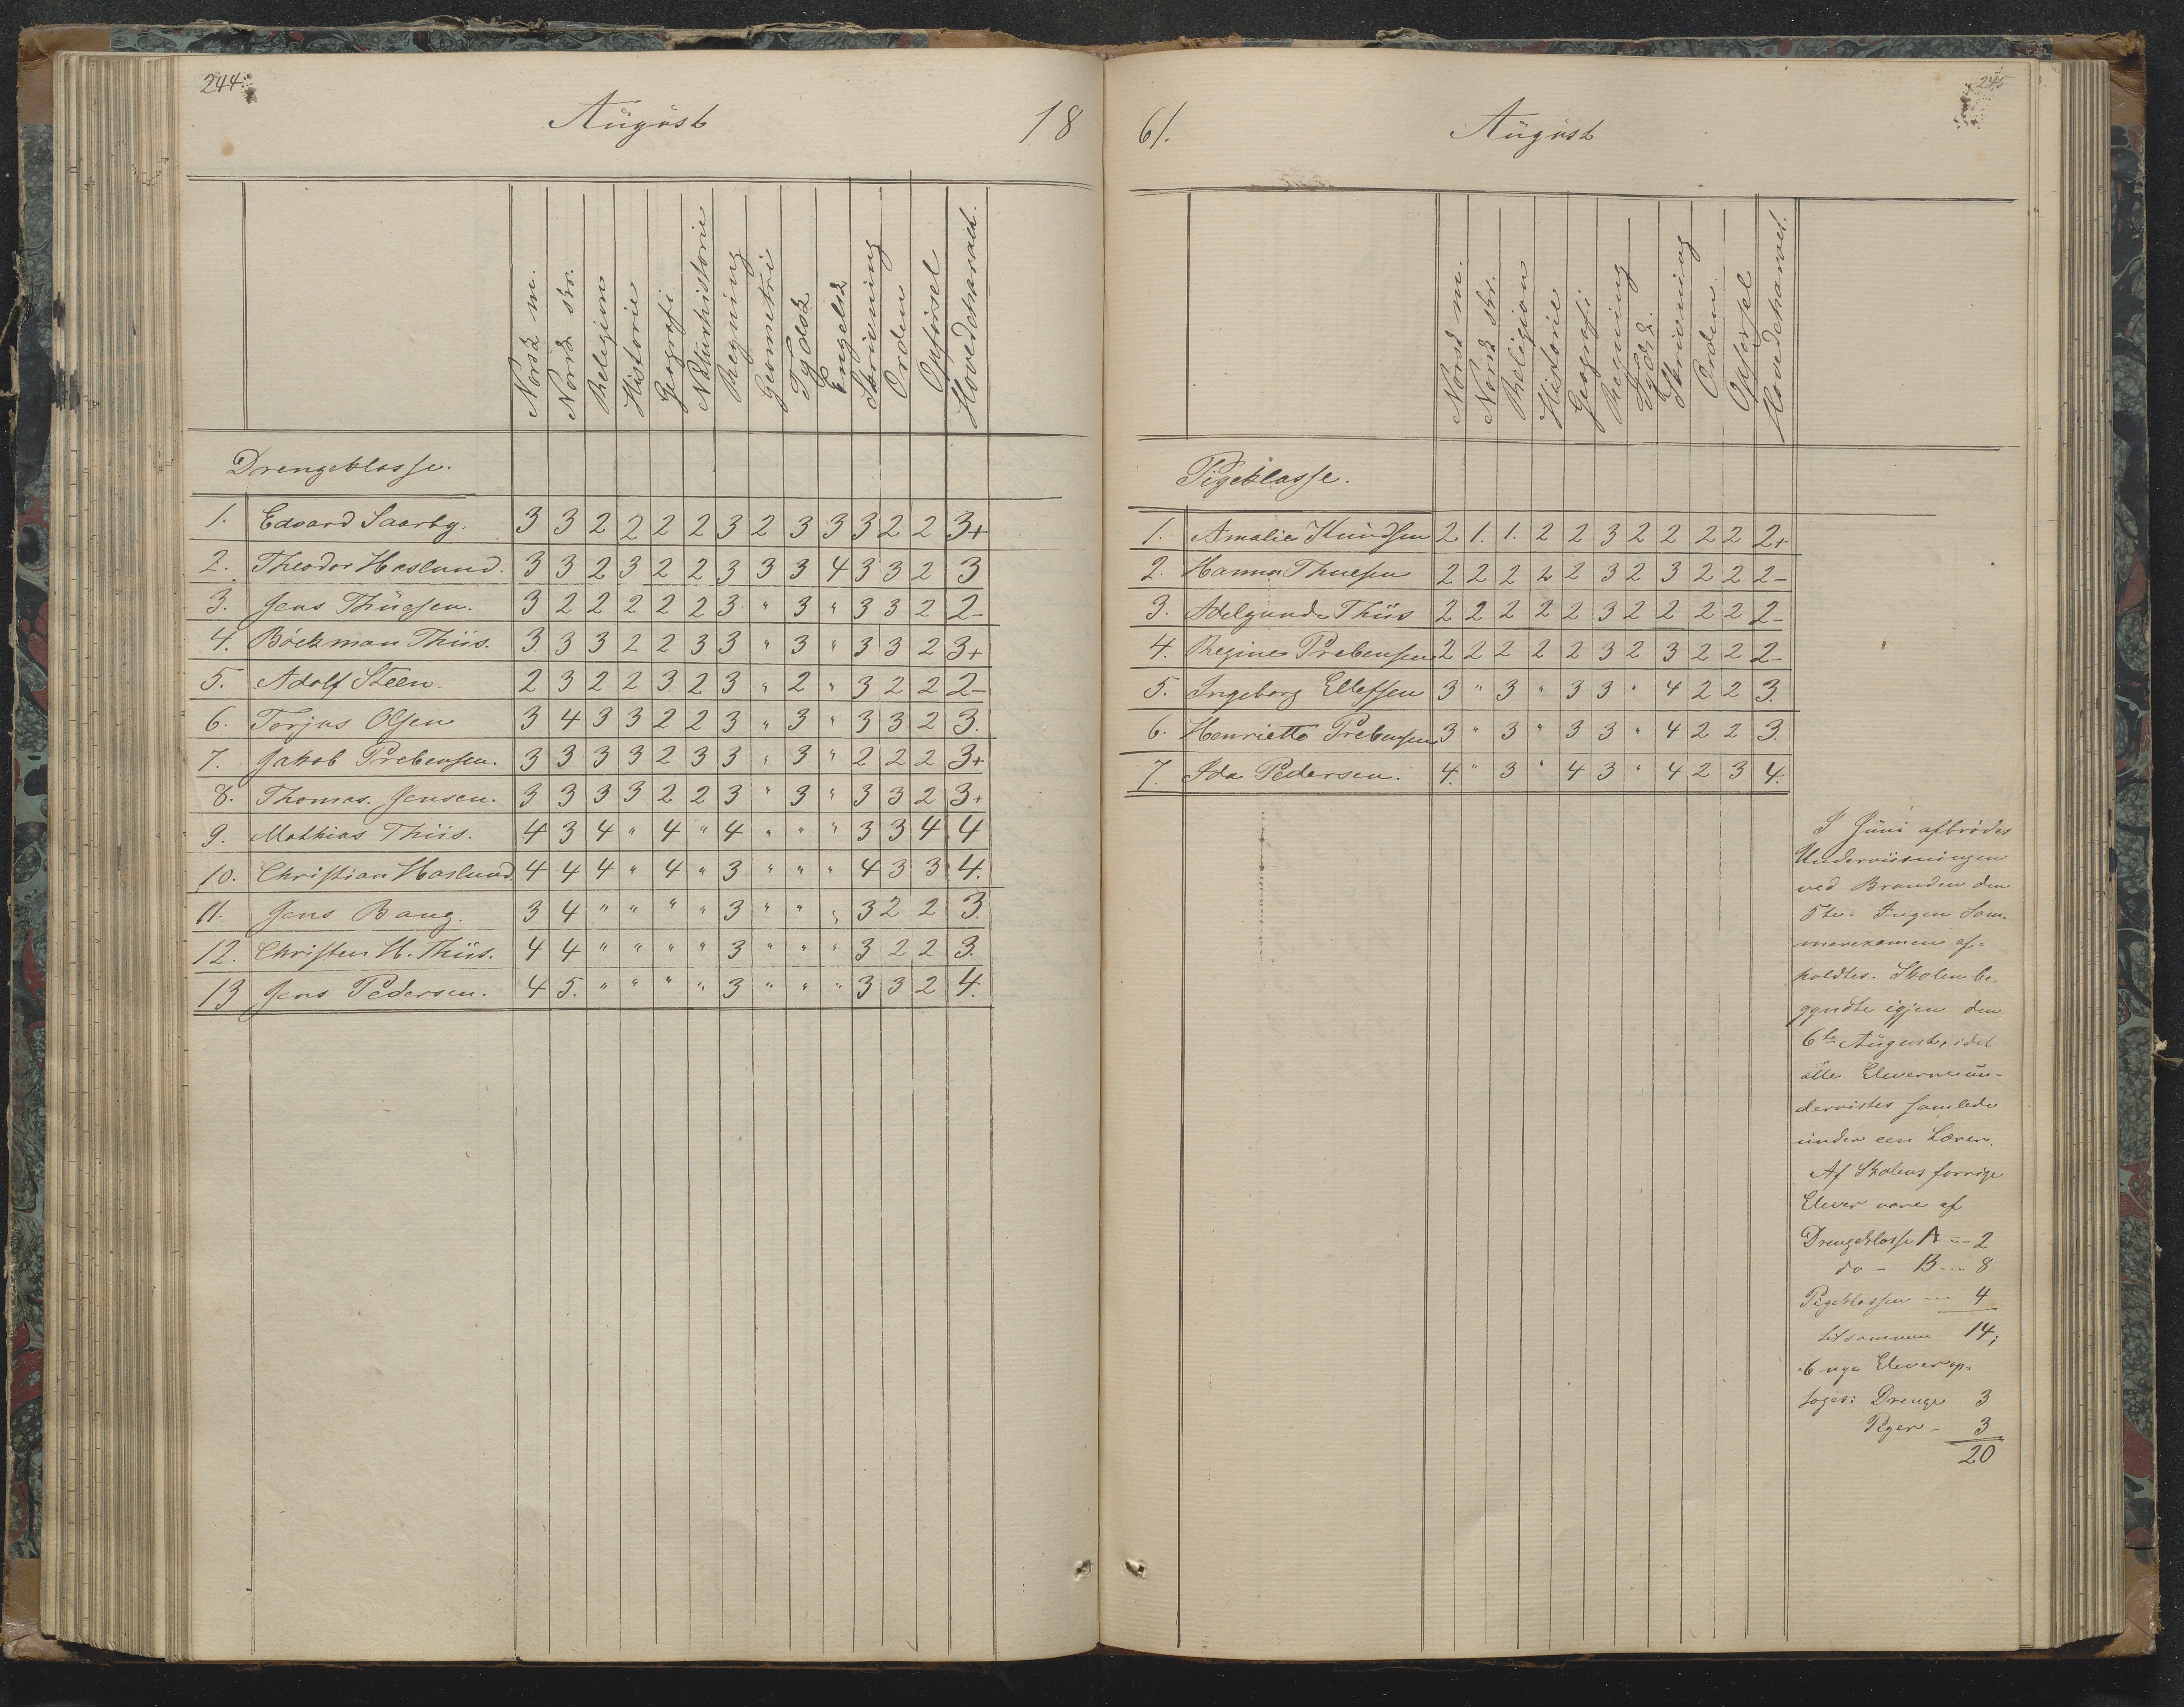 244.
August 18
Norsk m. Norsk skr. Religion Historie Geografi Naturhistorie Regning Geometri Tydsk Engelsk Skrivning Orden Opførsel Hovedcharakt.
Drengeklasse.
1. Edvard Saarby. 3 3 2 2 2 2 3 2 3 3 3 2 2 3+
2. Theodor Haslund. 3 3 2 3 2 2 3 3 3 4 3 3 2 3
3. Jens Thuesen. 3 2 2 2 2 2 3 " 3 " 3 3 2 2-
4. Böckman Thiis. 3 3 3 2 2 3 3 " 3 " 3 3 2 3+
5. Adolf Steen. 2 3 2 2 3 2 3 " 2 " 3 2 2 2-
6. Torjus Olsen 3 4 3 3 2 2 3 " 3 " 3 3 2 3.
7. Jakob Prebensen. 3 3 3 3 2 3 3 " 3 " 2 2 2 3+
8. Thomas. Jensen. 3 3 3 3 2 2 3 " 3 " 3 3 2 3+
9. Mathias Thiis. 4 3 4 " 4 " 4 " " " 3 3 4 4
10. Christian Haslund. 4 4 4 " 4 " 3 " " " 4 3 3 4.
11. Jens Bang. 3 4 " " " " 3 " " " 3 2 2 3.
12. Christen H. Thiis. 4 4 " " " " 3 " " " 3 2 2 3.
13 Jens Pedersen. 4 5. " " " " 3 " " " 3 3 2 4.
245
61. August
Norsk m. Norsk skr. Religion Historie Geografi Regning Tydsk. Skrivning Orden. Opførsel Hovedcharakt.
Pigeklasse.
1. Amalie Knudsen 2 1. 1. 2 2 3 2 2 2 2 2+
2. Hanna Thuesen 2 2 2 2 2 3 2 3 2 2 2-
3. Adelgunde Thiis 2 2 2 2 2 3 2 2 2 2 2-
4. Regine Prebensen 2 2 2 2 2 3 2 3 2 2 2-
5. Ingeborg Ellefsen 3 " 3 " 3 3 " 4 2 2 3.
6. Henriette Prebensen 3 " 3 " 3 3 " 4 2 2 3.
7. Ida Pedersen. 4. " 3 " 4 3 " 4 2 3 4.
I Juni afbrødes
Underviisningen
ved Branden den
5te. Ingen Som-
merexamen af-
holdtes. Skolen be-
gyndte igjen den
6te August, idet
alle Eleverne un-
dervistes samlede
under een Lærer.
Af Skolens forrige
Elever vare af
Drengeklasse A -- 2
do - B --- 8
Pigeklassen --- 4
tilsammen 14;
6 nye Elever op-
toges: Drenge 3
Piger - 3
20